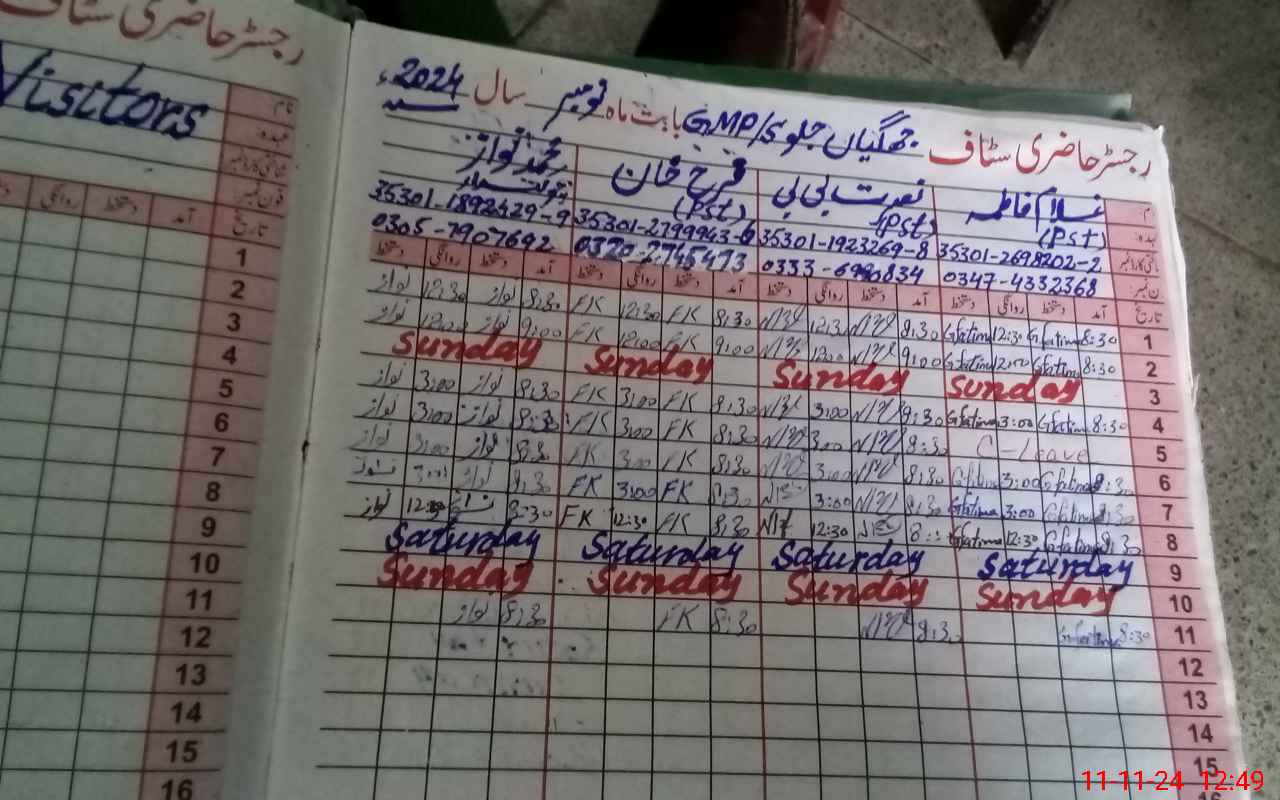 رجسٹر حاضری سٹاف
Visitors
نام:
عہدہ:
شناختی کارڈ نمبر
فون نمبر:
تاریخ
آمد
دستخط
روانگی
1
2
3
4
5
6
7
8
9
10
11
12
13
14
15
16
رجسٹر حاضری سٹاف GMPS/جھگیاں جلو بابت ماہ نومبر سال 2024ء
غلام فاطمہ نصرت بی بی فرح خان محمد نواز
(Pst) (Pst) (Pst)
35301-2698202-2 35301-1923269-8 35301-2799943-6 35301-1892429-9
0347-4332368 0320-2745473 0305-7907692
تاریخ آمد دستخط روانگی دستخط آمد دستخط روانگی دستخط آمد دستخط روانگی دستخط آمد دستخط روانگی دستخط
1 8:30 Gfatima 12:30 Gfatima 8:30 12:30 8:30 FK 12:30 FK 8:30 نواز 12:30 نواز
2 8:30 Gfatima 12:00 Gfatima 9:00 12:00 9:00 FK 12:00 FK 9:00 نواز 12:00 نواز
3 Sunday Sunday Sunday Sunday
4 8:30 Gfatima 3:00 Gfatima 8:30 3:00 8:30 FK 3:00 FK 8:30 نواز 3:00 نواز
5 C-Leave 8:30 3:00 8:30 FK 3:00 FK 8:30 نواز 3:00 نواز
6 8:30 Gfatima 3:00 Gfatima 8:30 3:00 8:30 FK 3:00 FK 8:30 نواز 3:00 نواز
7 8:30 Gfatima 3:00 Gfatima 8:30 3:00 8:30 FK 3:00 FK 8:30 نواز 3:00 نواز
8 8:30 Gfatima 12:30 Gfatima 12:30 8:30 FK 12:30 FK 8:30 نواز 12:30 نواز
9 Saturday Saturday Saturday Saturday
10 Sunday Sunday Sunday Sunday
11 8:30 Gfatima 8:30 8:30 FK 8:30 نواز
12
13
14
15
16
11-11-24 12:49